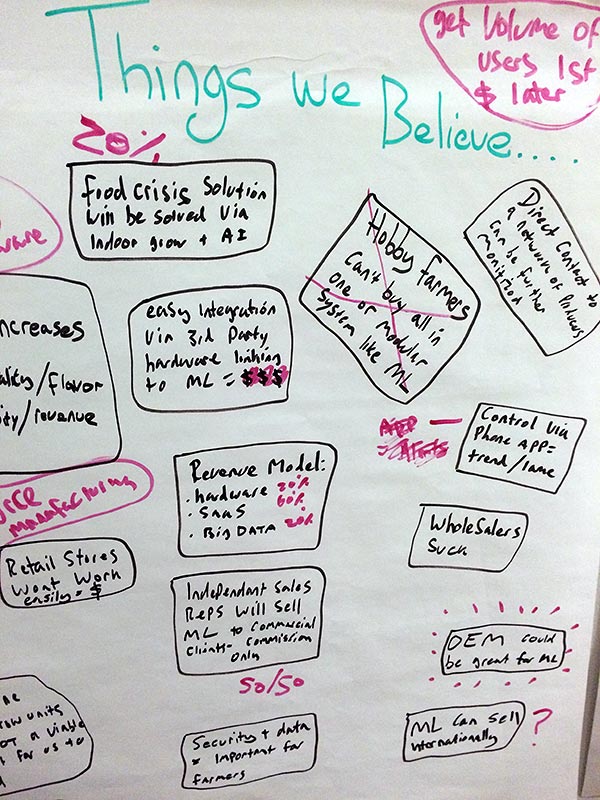 Things we
Believe....
get Volume of
users 1st
$ later
20%
food crisis Solution
will be solved via
Indoor grow + AI
Hobby farmers
Can't buy all in
one or modular
system like ML
Direct Contact to
a network of Producers
can be further
monitized
ware
ncreases
ality/flavor
ity/revenue
easy Integration
via 3rd Party
hardware linking
to ML = $$$
???
APP
Control via
Phone APP=
trend/lame
Revenue Model:
· hardware 20%
· SaaS 60%
· Big DATA 20%
manufacturing
Wholesalers
Suck
Retail Stores
Wont Work
easily = $
Independant Sales
Reps will sell
ML to Commercial
Clients - Commission
Only
50/50
OEM could
be great for ML
row units
OT a viable
t for us to
Security + data
= Important for
farmers
ML can sell
internationally
?